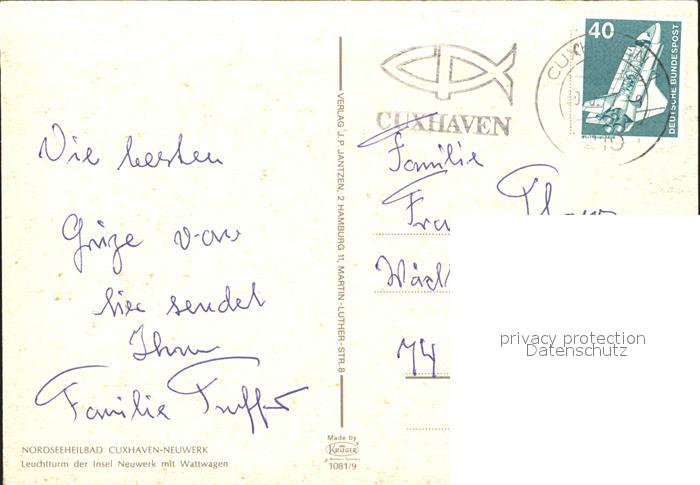 Die besten
Grüße von
hier sendet
Ihnen
Familie
NORDSEEHEILBAD CUXHAVEN-NEUWERK
Leuchtturm der Insel Neuwerk mit Wattwagen
VERLAG J. P. JANTZEN, 2 HAMBURG 11, MARTIN-LUTHER-STR. 8
Made by
KRÜGER
1081/9
CUXHAVEN
40
DEUTSCHE BUNDESPOST
Familie
privacy protection
Datenschutz